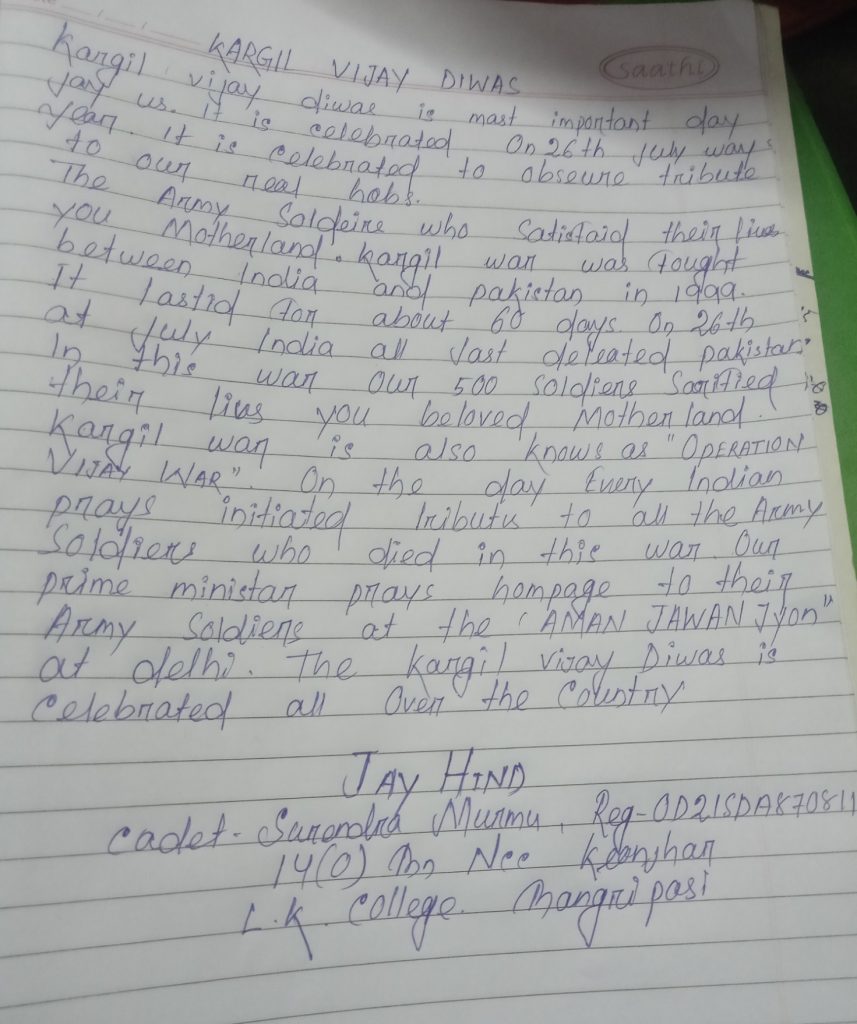 saathi
KARGIL VIJAY DIWAS
Kargil vijay diwas is mast important day
jay us. it is celebrated On 26th July ways
year. it is celebrated to obseure tribute
to our real hobs.
The Army Soldeire who Satistaid their lives
you Motherland. Kargil war was fought
between India and pakistan in 1999.
It lastid for about 60 days. On 26th
at July India all last defeated pakistan.
In this war our 500 soldiers Sarified
their lives you beloved Motherland.
Kargil war is also knows as "OPERATION
VIJAY WAR". On the day Every Indian
prays initiated tributu to all the Army
Soldiers who died in this war. Our
prime ministar prays hompage to their
Army Soldiers at the "AMAN JAWAN Jyon"
at delhi. The Kargil vijay Diwas is
celebrated all Over the Country
JAY HIND
Cadet- Surendra Murmu, Reg-OD21SDA870811
14(O) Bn Ncc Keonjhar
L.K. College. Bangripasi